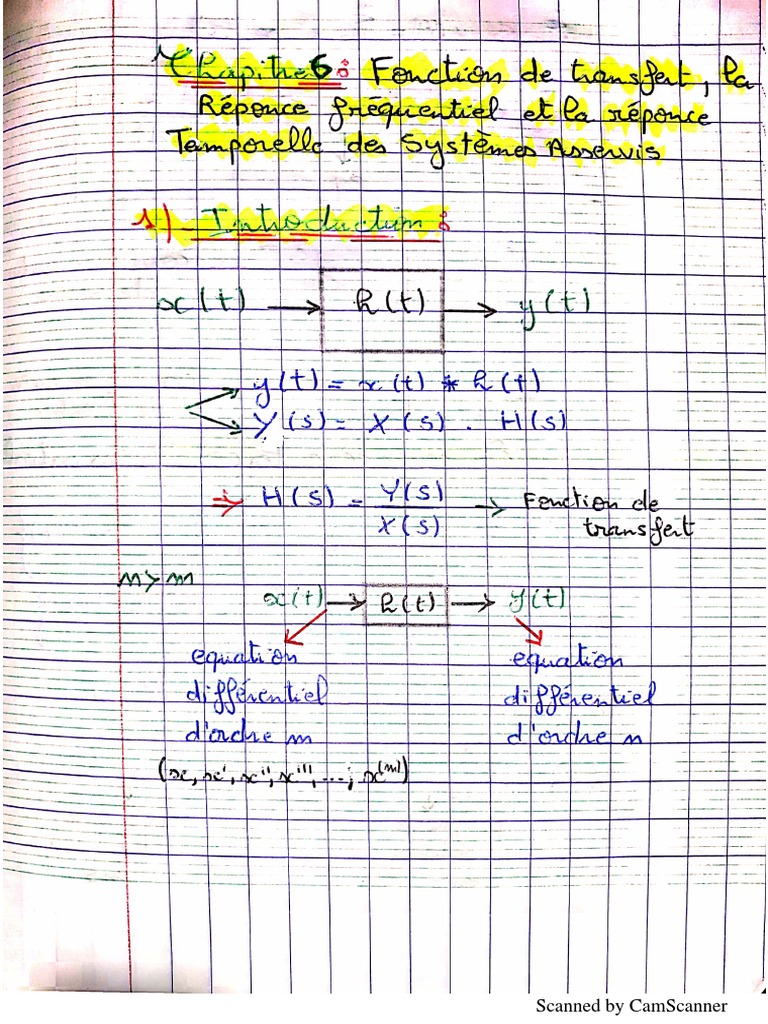 Chapitre 6 : Fonction de transfert, la
Réponce fréquentiel et la réponce
Temporelle des Systèmes Asservis
1) Introduction :
x(t) → h(t) → y(t)
y(t) = x(t) * h(t)
Y(s) = X(s) . H(s)
⇒ H(s) = Y(s) / X(s) → Fonction de
transfert
n > m
x(t) → h(t) → y(t)
equation equation
différentiel différentiel
d'ordre m d'ordre n
(x, x', x'', x''', ...; x^(m))
Scanned by CamScanner